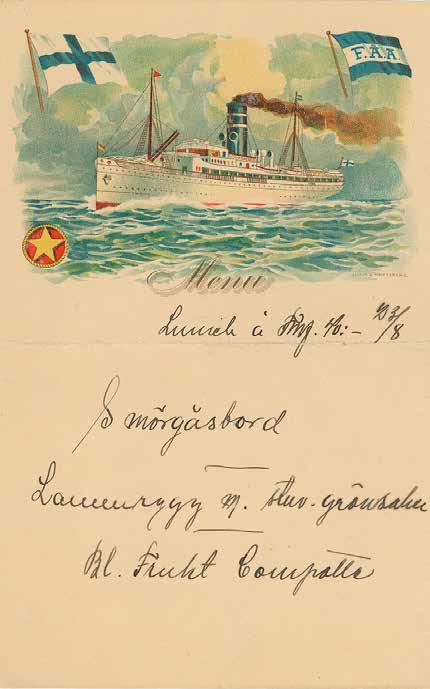 F.Å.A.
Menu
Lunch à Fmk. 40:- 23/8
Smörgåsbord
Lammrygg m. stuv. grönsaker
Bl. Frukt Compotte